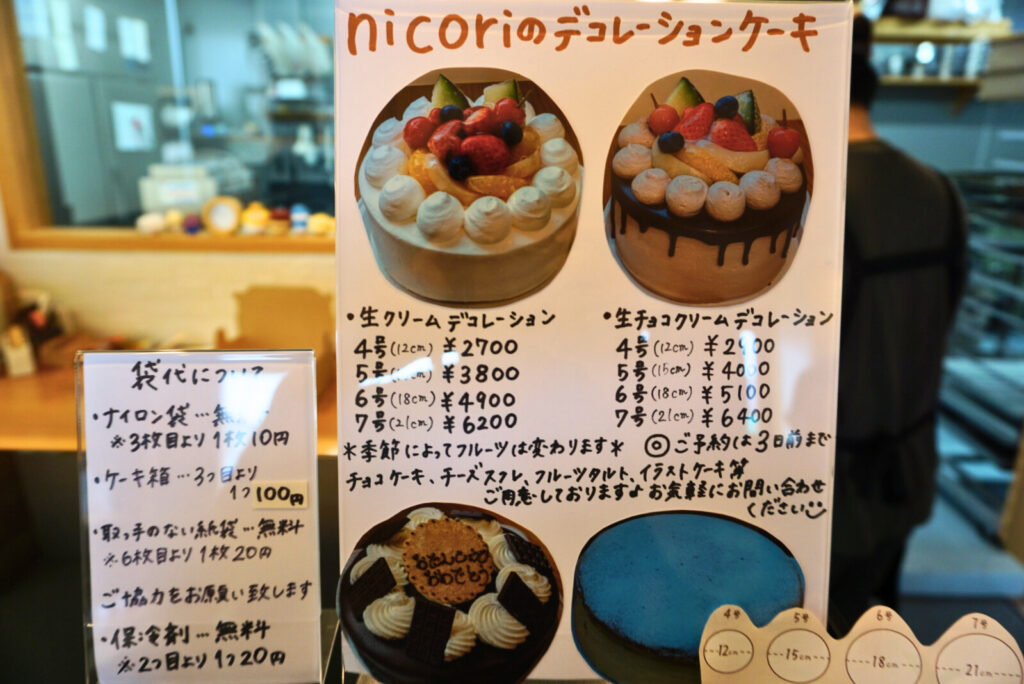 nicoriのデコレーションケーキ
・生クリームデコレーション
4号(12cm) ¥2700
5号 ¥3800
6号(18cm) ¥4900
7号(21cm) ¥6200
・生チョコクリームデコレーション
4号(12cm) ¥2900
5号(15cm) ¥4000
6号(18cm) ¥5100
7号(21cm) ¥6400
*季節によってフルーツは変わります*
◎ご予約は3日前まで
チョコケーキ、チーズスフレ、フルーツタルト、イラストケーキ等
ご用意しております♪お気軽にお問い合わせ
ください
おたんじょうび
おめでとう
袋代について
・ナイロン袋…無料
※3枚目より1枚10円
・ケーキ箱…3つ目より
1つ100円
・取っ手のない紙袋…無料
※6枚目より1枚20円
ご協力をお願い致します
・保冷剤…無料
※2つ目より1つ20円
4号
12cm
5号
15cm
6号
18cm
7号
21cm